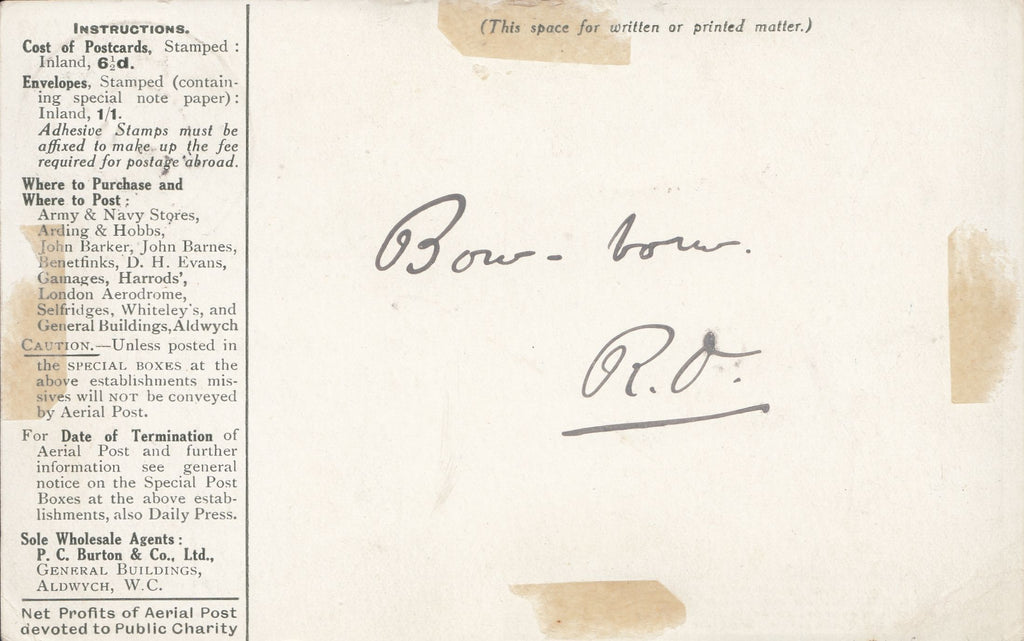 INSTRUCTIONS.
Cost of Postcards, Stamped :
Inland, 6½d.
Envelopes, Stamped (contain-
ing special note paper) :
Inland, 1/1.
Adhesive Stamps must be
affixed to make up the fee
required for postage abroad.
Where to Purchase and
Where to Post :
Army & Navy Stores,
Arding & Hobbs,
John Barker, John Barnes,
Benetfinks, D. H. Evans,
Gamages, Harrods',
London Aerodrome,
Selfridges, Whiteley's, and
General Buildings, Aldwych
CAUTION.—Unless posted in
the SPECIAL BOXES at the
above establishments mis-
sives will NOT be conveyed
by Aerial Post.
For Date of Termination of
Aerial Post and further
information see general
notice on the Special Post
Boxes at the above estab-
lishments, also Daily Press.
Sole Wholesale Agents :
P. C. Burton & Co., Ltd.,
GENERAL BUILDINGS,
ALDWYCH, W.C.
Net Profits of Aerial Post
devoted to Public Charity
(This space for written or printed matter.)
Bow - bow.
R.O.